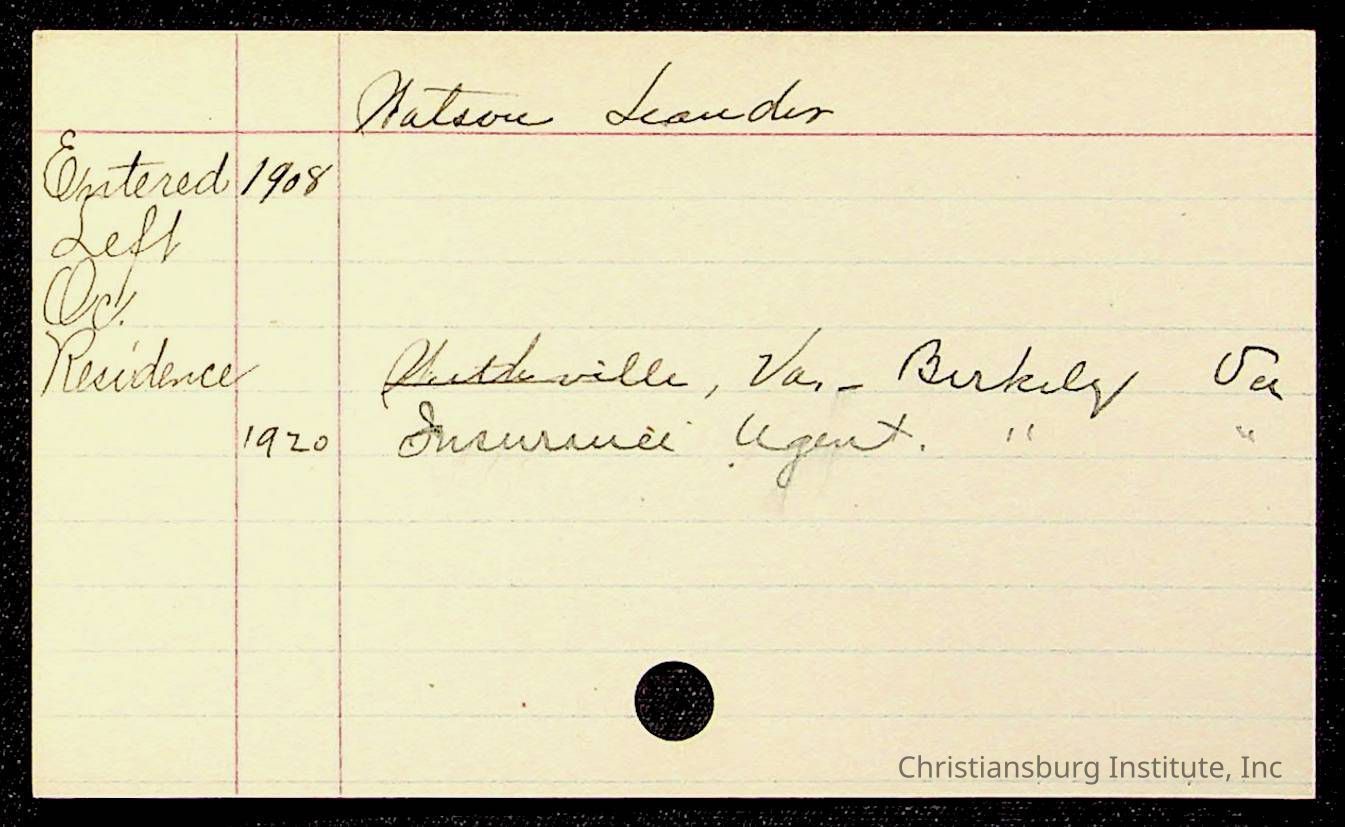 Watson Leander
Entered 1908
Left
Oc.
Residence , Va. - Berkely Va
1920 Insurance Agent. " "
Christiansburg Institute, Inc